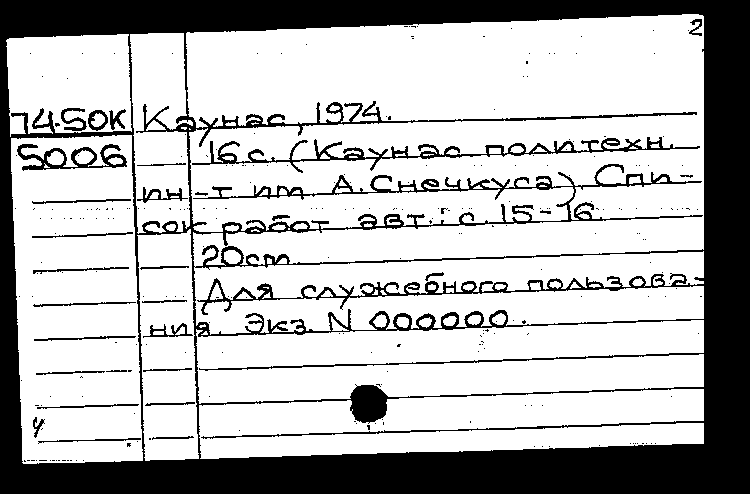 2
74-50К Каунас, 1974.
5006 16 с. (Каунас политехн.
ин-т им. А.Снечкуса). Спи-
сок работ авт.: с. 15-16.
20cm.
Для служебного пользова-
ния. Экз. N 000000.